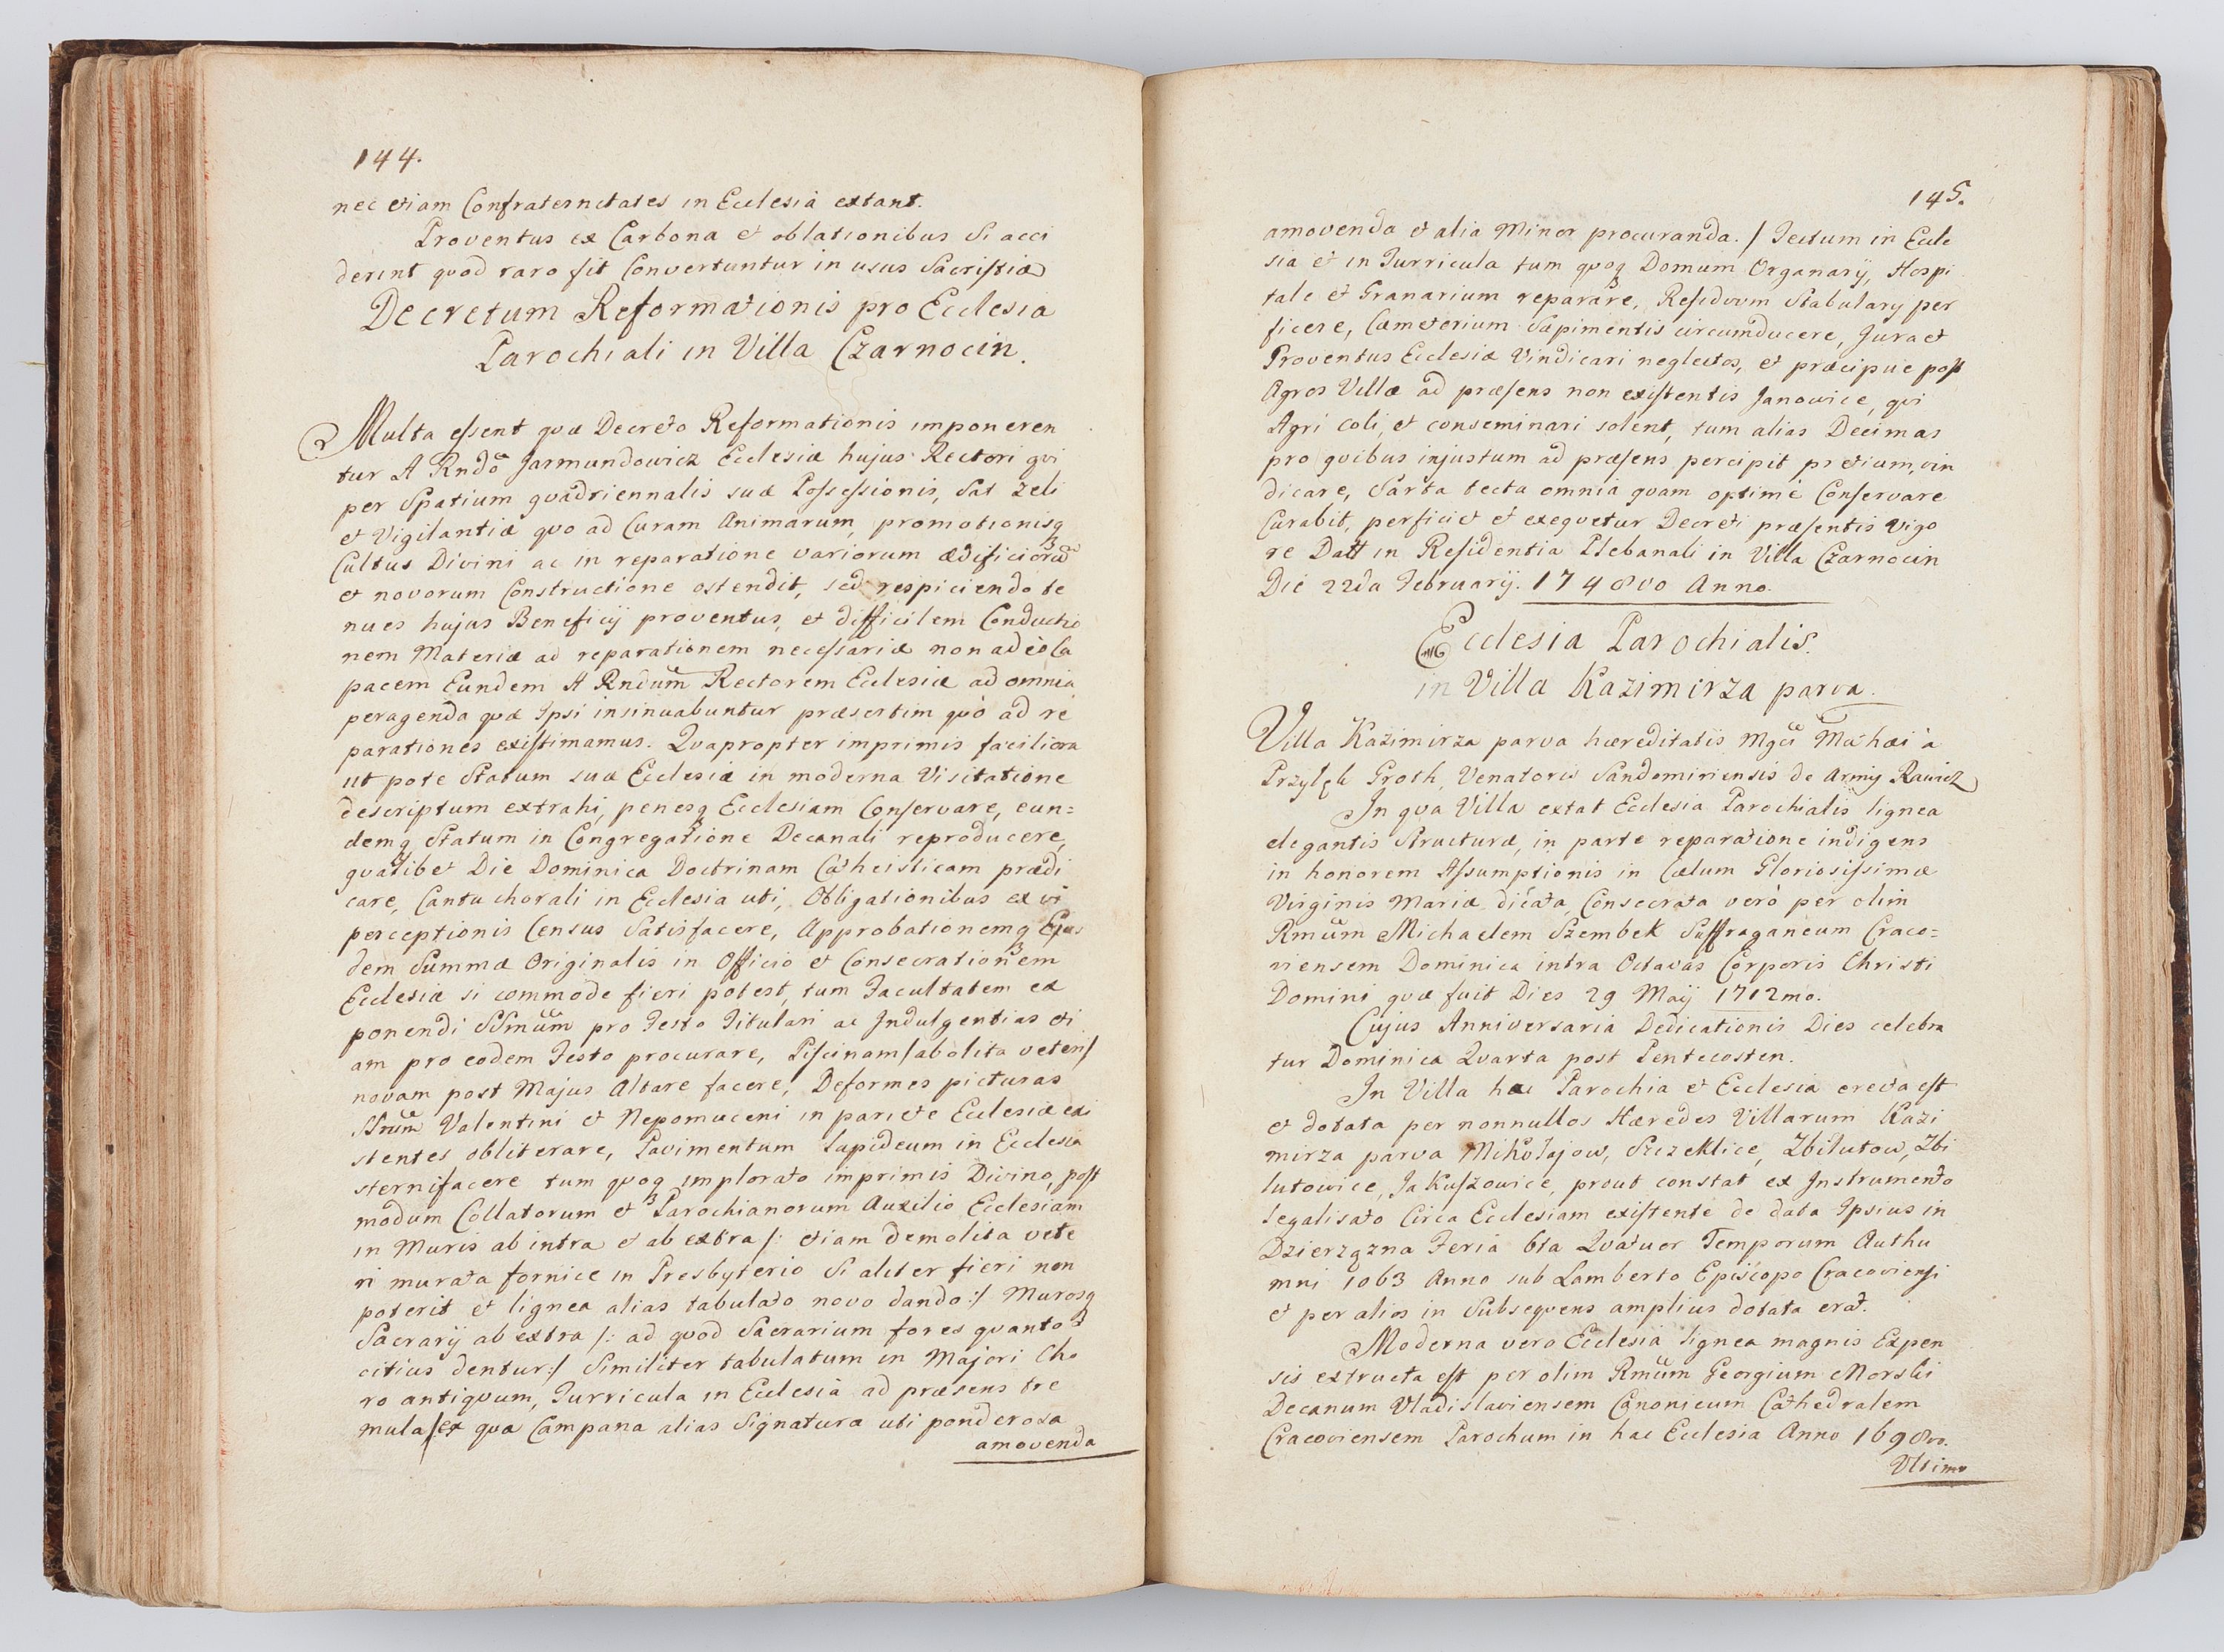 144.
nec etiam Confraternitates in Ecclesiâ extant.
Proventus ex Carbona et oblationibus Si acci
derint quod raro fit Convertuntur in usus Sacristiæ
Decretum Reformationis pro Ecclesia
Parochiali in Villa Czarnocin.
Multa essent quæ Decreto Reformationis imponeren
tur A Rndo Jarmundowicz Ecclesiæ hujus Rectori qvi
per Spatium qvadriennalis suæ Possessionis, Sat zeli
et Vigilantiæ qvo ad Curam Animarum, promotionisq3
Cultus Divini ac in reparatione variorum ædificiorum
et novorum Constructione ostendit, sed respiciendo te
nues hujus Beneficij proventus, et difficilem Conductio
nem Materiæ ad reparationem necessariæ non adeò Ca
pacem Eundem A Rndum Rectorem Ecclesiæ ad omnia
peragenda qvæ Ipsi insinuabuntur præsertim qvò ad re
parationes existimamus. Qvapropter imprimis faciliora
ut pote Statum suæ Ecclesiæ in moderna Visitatione
descriptum extrahi, penesq3 Ecclesiam Conservare, eun=
demq3 Statum in Congregatione Decanali reproducere,
qvalibet Die Dominica Doctrinam Catheisticam prædi
care, Cantu chorali in Ecclesia uti, Obligationibus ex vi
perceptionis Census Satisfacere, Approbationemq3 Ejus
dem Summæ Originalis in Officio et Consecrationem
Ecclesiæ si commode fieri potest, tum Facultatem ex
ponendi SSmum pro Festo Titulari ac Indulgentias eti
am pro eodem Festo procurare, Piscinam/abolita veteri/
novam post Majus Altare facere, Deformes picturas
SSrum Valentini et Nepomuceni in pariete Ecclesiæ exi
stentes obliterare, Pavimentum Lapideum in Ecclesia
sternifacere tum qvoq3 implorato imprimis Divino, post
modum Collatorum et Parochianorum Auxilio Ecclesiam
in Muris ab intra et ab extra /: etiam demolita vete
ri murata fornice in Presbyterio Si aliter fieri non
poterit et lignea alias tabulato novo dando:/ Murosq3
Sacrarij ab extra /: ad qvod Sacrarium fores qvanto
citius dentur:/ Similiter tabulatum in Majori Cho
ro antiqvum, Turricula in Ecclesiâ ad præsens tre
mula/ex qva Campana alias Signatura uti ponderosa
amovenda
145.
amovenda et alia Minor procuranda./ Tectum in Eccle
sia et in Turricula tum qvoq3 Domum Organarij, Hospi
tale et Granarium reparare, Residuum Stabulary per
ficere, Cæmeterium Sæpimentis circumducere, Jura et
Proventus Ecclesiæ Vindicari neglectos, et præcipue post
Agros Villæ ad præsens non existentis Janowice, qvi
Agri coli, et conseminari solent, tum alias Decimas
pro qvibus injustum ad præsens percipit pretium, vin
dicare, Sarta tecta omnia qvam optimè Conservare
Curabit, perficiet et exeqvetur Decreti præsentis Vigo
re Datt in Residentia Plebanali in Villa Czarnocin
Die 22da Februarij. 1748vo Anno.
Ecclesia Parochialis.
in Villa Kazimirza parva.
Villa Kazimirza parva hæreditatis Mgci Mathæi a
Przyłęk Groth, Venatoris Sandomiriensis de Armij Rawicz
In qva Villa extat Ecclesia Parochialis lignea
elegantis Structuræ, in parte reparatione indigens
in honorem Assumptionis in Cælum Gloriosissimæ
Virginis Mariæ dicata, Consecrata verò per olim
Rmum Michaelem Szembek Suffraganeum Craco=
viensem Dominica intra Octavas Corporis Christi
Domini qvæ fuit Dies 29 Maij 1712mo.
Cujus Anniversaria Dedicationis Dies celebra
tur Dominica Qvarta post Pentecosten.
In Villa hac Parochia et Ecclesia erecta est
et dotata per nonnullos Hæredes Villarum Kazi
mirza parva Mikołajow, Sieczeklice, Zbilutow, Zbi
lutowice, Jakuszowice, prout constat ex Instrumento
legalisato Circa Ecclesiam existente de data Ipsius in
Dzierzązna Feria 6ta Qvatuor Temporum Authu
mni 1063 Anno sub Lamberto Episcopo Cracoviensi
et per alios in Subseqvens amplius dotata erat.
Moderna vero Ecclesia lignea magnis Expen
sis extructa est per olim Rmum Georgium Morski
Decanum Vladislaviensem Canonicum Cathedralem
Cracoviensem Parochum in hac Ecclesia Anno 1698vo.
Ultimo